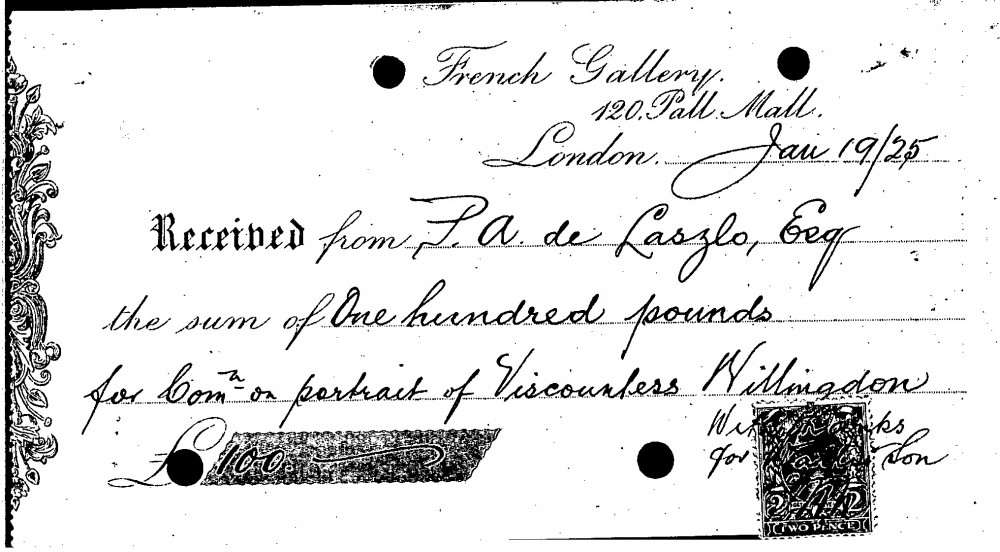 French Gallery.
120. Pall Mall.
London. Jan 19/25
Received from P. A. de Laszlo, Esq
the sum of One hundred pounds
for Comn on portrait of Viscountess Willingdon
£100.
for Son
2 2
TWO PENCE